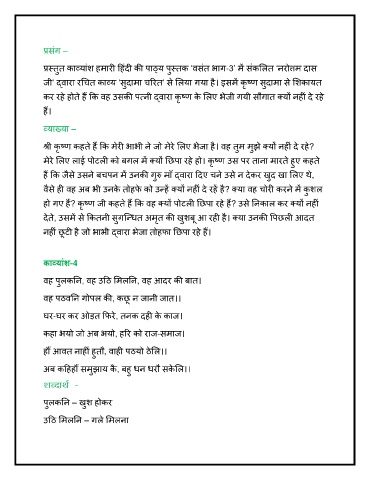 प्रसंग –
प्रस्तुत काव्यांश हमारी हिंदी की पाठ्य पुस्तक 'वसंत भाग-3' में संकलित 'नरोत्तम दास
जी' द्वारा रचित काव्य 'सुदामा चरित' से लिया गया है। इसमें कृष्ण सुदामा से शिकायत
कर रहे होते हैं कि वह उसकी पत्नी द्वारा कृष्ण के लिए भेजी गयी सौगात क्यों नहीं दे रहे
हैं।
व्याख्या –
श्री कृष्ण कहते हैं कि मेरी भाभी ने जो मेरे लिए भेजा है। वह तुम मुझे क्यों नहीं दे रहे?
मेरे लिए लाई पोटली को बगल में क्यों छिपा रहे हो। कृष्ण उस पर ताना मारते हुए कहते
हैं कि जैसे उसने बचपन में उनकी गुरु माँ द्वारा दिए चने उसे न देकर खुद खा लिए थे,
वैसे ही वह अब भी उनके तोहफे को उन्हें क्यों नहीं दे रहे है? क्या वह चोरी करने में कुशल
हो गए हैं? कृष्ण जी कहते हैं कि वह क्यों पोटली छिपा रहे हैं? उसे निकाल कर क्यों नहीं
देते, उसमें से कितनी सुगन्धित अमृत की खुशबू आ रही है। क्या उनकी पिछली आदत
नहीं छूटी है जो भाभी द्वारा भेजा तोहफा छिपा रहे हैं।
काव्यांश-4
वह पुलकनि, वह उठि मिलनि, वह आदर की बात।
वह पठवनि गोपल की, कछू न जानी जात।।
घर-घर कर ओड़त फिरे, तनक दही के काज।
कहा भयो जो अब भयो, हरि को राज-समाज।
हौं आवत नाहीं हुतौ, वाही पठयो ठेलि।।
अब कहिहौं समुझाय कै, बहु धन धरौ सकेलि।।
शब्दार्थ -
पुलकनि – खुश होकर
उठि मिलनि – गले मिलना